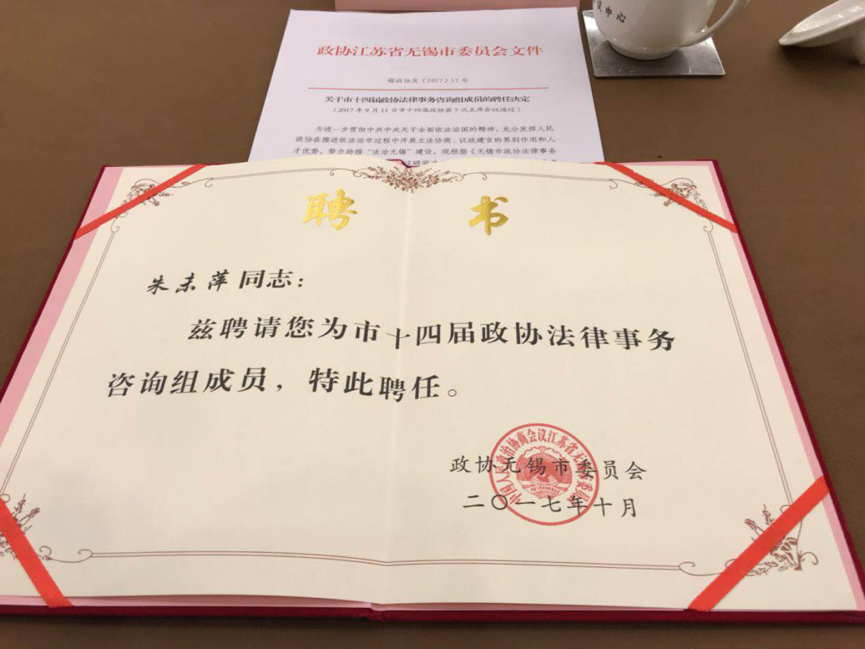 中心
政协江苏省无锡市委员会文件
锡政协发〔2017〕17号
关于市十四届政协法律事务咨询组成员的聘任决定
（2017年9月11日市十四届政协第7次主席会议通过）
为进一步贯彻中共中央关于全面依法治国的精神，充分发挥人民
政协在推进依法治市过程中开展立法协商、议政建言的界别作用和人
才优势，努力助推“法治无锡”建设，现根据《无锡市政协法律事务
聘书
朱未萍同志：
兹聘请您为市十四届政协法律事务
咨询组成员，特此聘任。
中国人民政治协商会议江苏省无锡市委员会
政协无锡市委员会
二〇一七年十月